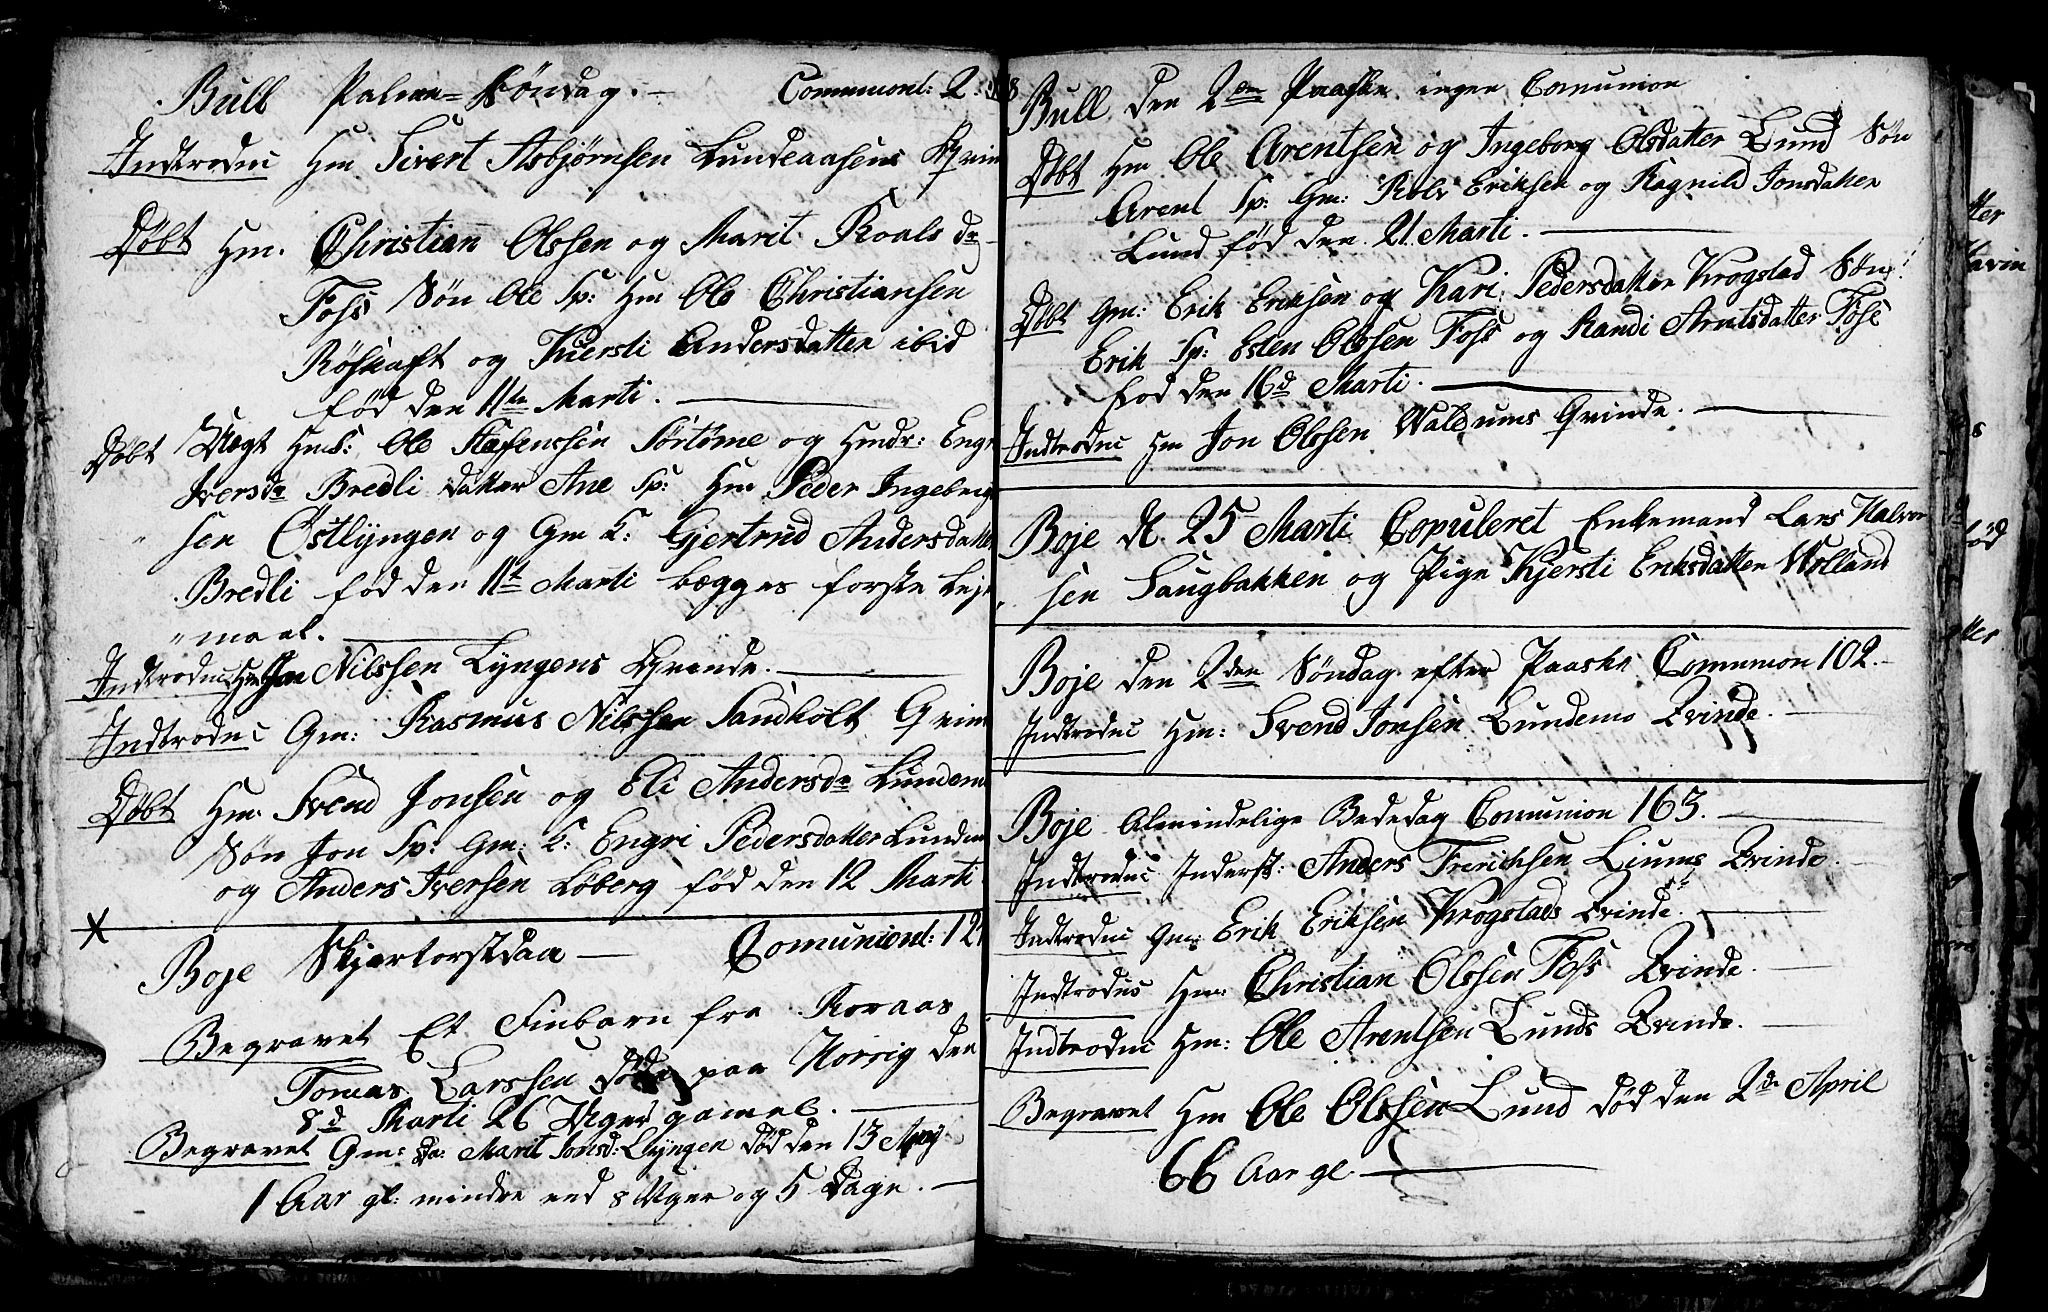 Bull Palme-Søndag. — Communi: 2
Introduc Hm Sivert Asbjørnsen Lundeaasens Qvin
Døbt Hm. Christian Olssen og Marit Roals dr
Foss Søn Ole Sp: Hm Ole Christiansen
Røskaft og Kiersti Andersdatter ibid
fød den 11te Marti. —
Døbt Uægt HmS: Ole Stefenssen Sørtøme og Hmdr: Engr
Iversdr Bredli datter Ane Sp: Hm Peder Ingebrigt
sen Østlyngen og Gm K: Gjertrud Andersdatter
Bredli fød den 11te Marti begges første Leje
"maal. —
Introduc Hm Nilssen Lyngens Qvinde. —
Introduc Gm: Rasmus Nilssen Sandholt Qvin
Døbt Hm. Svend Jonsen og Eli Andersdr Lundemo
Søn Jon Sp: Gm: K: Engri Pedersdatter Lundem
og Anders Iversen Løberg fød den 12 Marti
X
Boje Skjertorsdag — Comunicnt: 12
Begravet Et Finbarn fra Roraas
Tomas Larssen døde paa Horrig den
8d Marti 26 Uger gamel. —
Begravet Gm: da: Marit Jonsd: Lyngen død den 13 Marj
1 Aar gl: mindre end 8 Uger og 5 Dage. —
Bull den 2den Paaske ingen Comunion
Døbt Hm Ole Arentsen og Ingeborg Olsdatter Lund Søn
Arent Sp: Gm: Rolv Eriksen og Ragnild Jonsdatter
Lund fød den 21. Marti. —
Døbt Gm: Erik Eriksen og Kari Pedersdatter Krogstad Søn
Erik Sp: Esten Olssen Foss og Randi Arntsdatter Fose
fød den 16d Marti. —
Introduc Hm Jon Olssen Waldums Qvinde. —
Boje d. 25 Marti Copuleret Enkemand Lars Halvor
sen Haugbakken og Pige Kjersti Eriksdatter Wolland
Boje den 2den Søndag efter Paaske Comunion 102. —
Introduc Hm: Svend Jonsen Lundemo Qvinde. —
Boje Almindelige Bededag Comunion 163. —
Introduc Inderst: Anders Frerichsen Liums Qvinde. —
Introduc Gm: Erik Eriksen Krogstads Qvinde. —
Introduc Hm: Christian Olssen Foss Qvinde. —
Introduc Hm: Ole Arentsen Lunds Qvinde. —
Begravet Hm Ole Olssen Lund død den 2de April
66 Aar gl. —